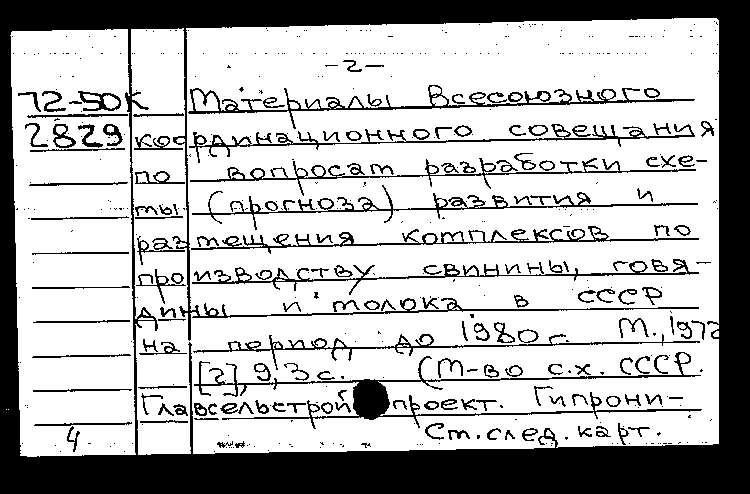 -2-
72-50К Материалы Всесоюзного
2829 координационного совещания
по вопросам разработки схе-
мы (прогноза) развития и
размещения комплексов по
производству свинины, говя-
дины и молока в СССР
на период до 1980 г. М., 1972
[2], 9, 3 с. (М-во с.х. СССР.
Главсельстройпроект. Гипрони-
4 См. след. карт.